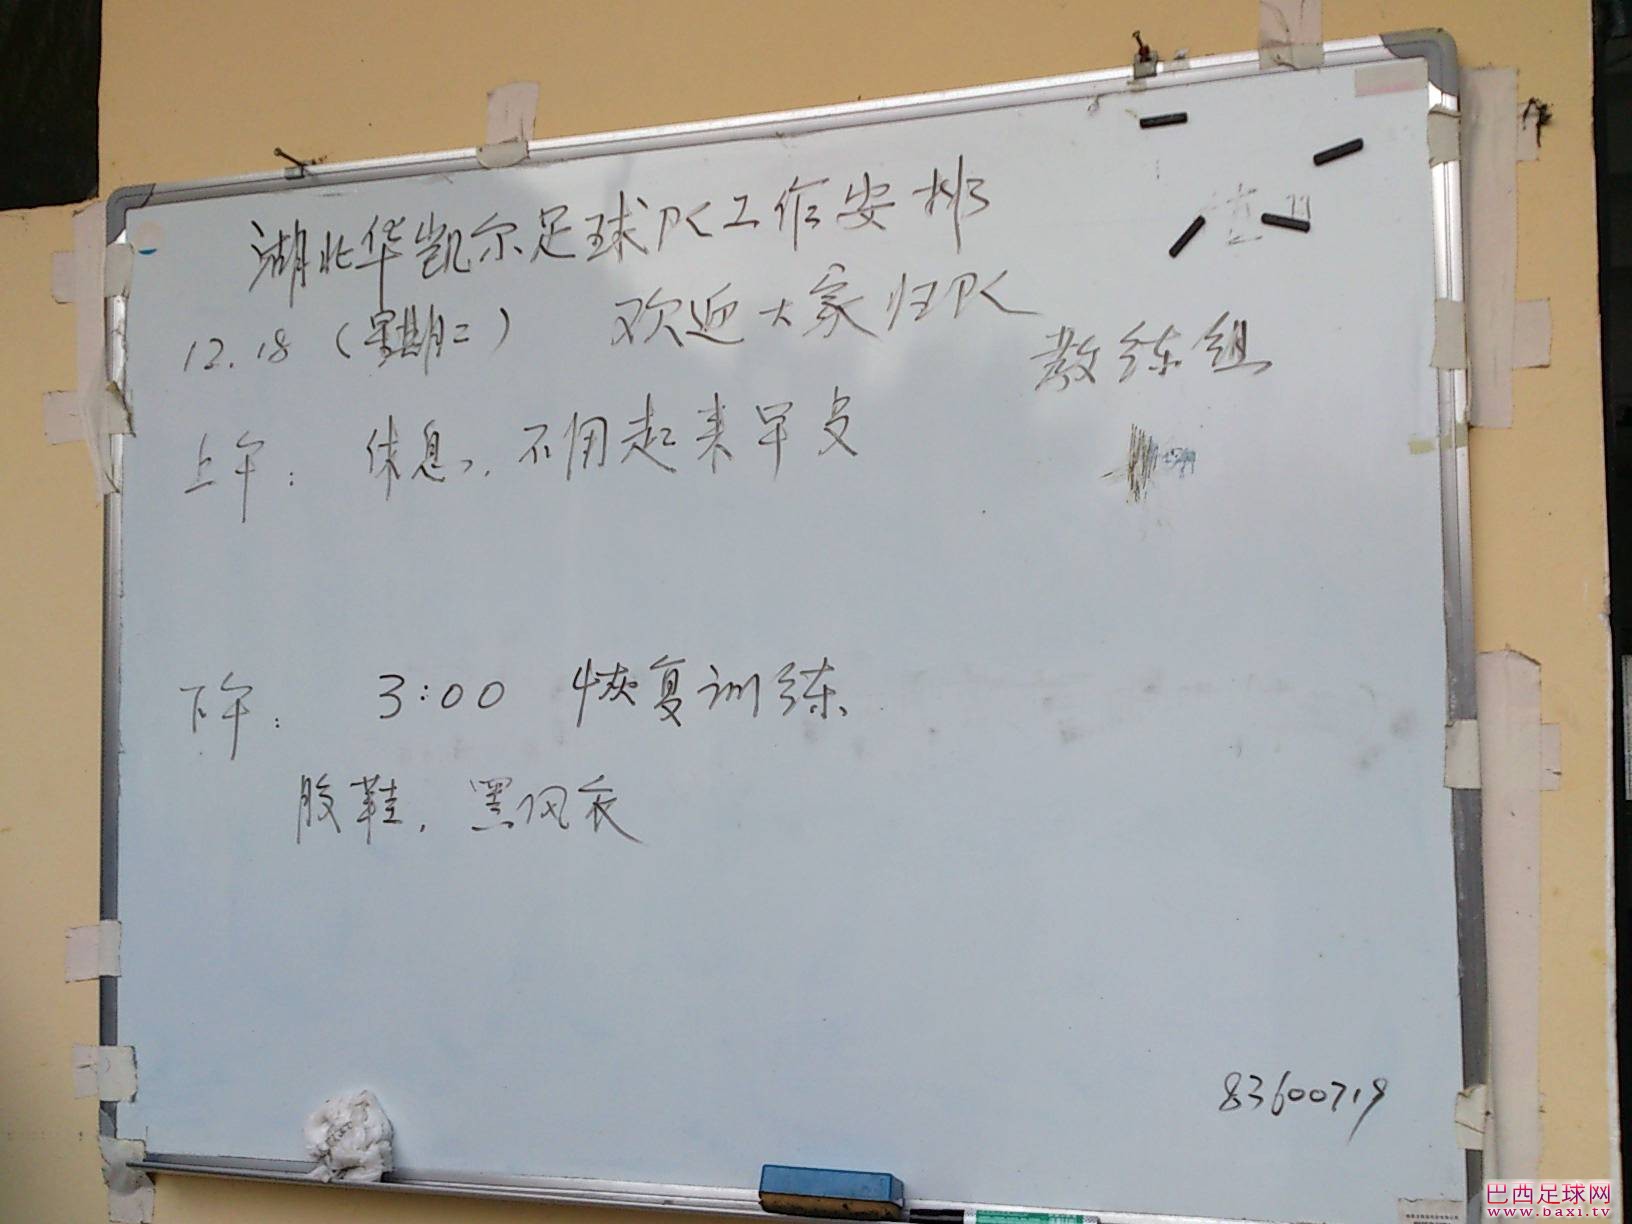 湖北华凯尔足球队工作安排
12.18（星期二） 欢迎大家归队
教练组
上午： 休息，不用起来早
下午： 3:00 恢复训练
胶鞋，黑风衣
83600719
巴西足球网
www.baxi.tv